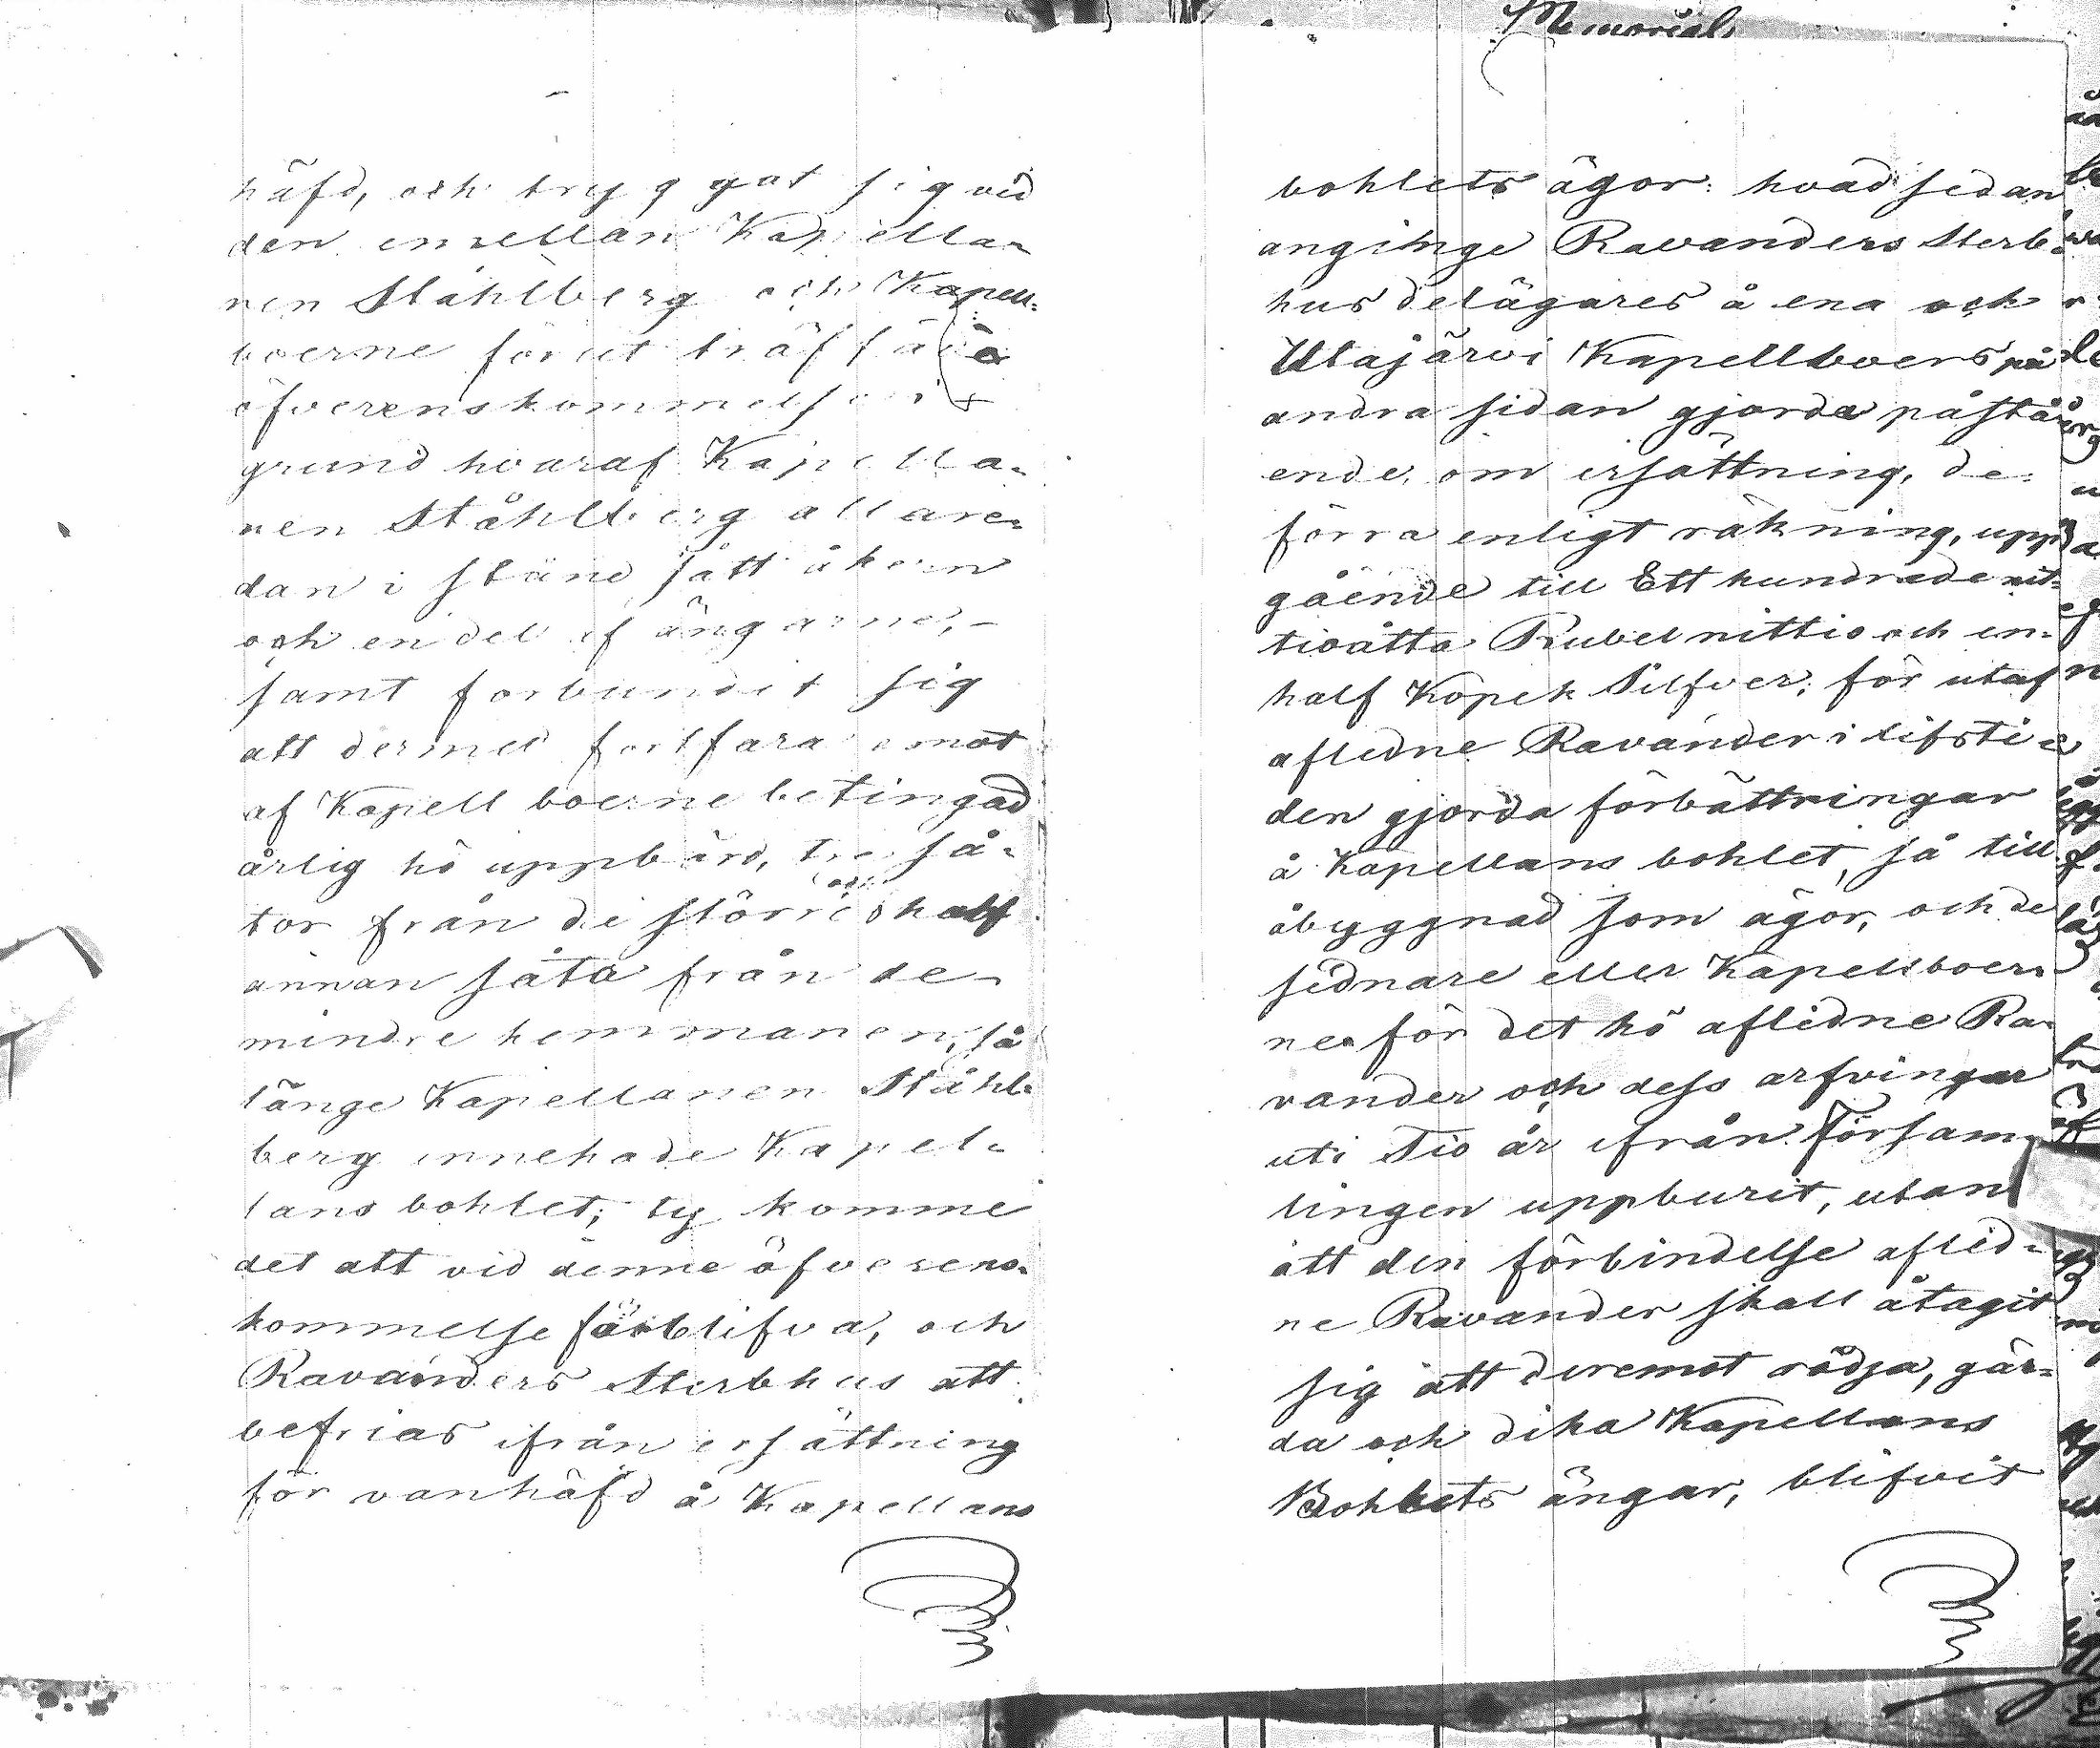 Memorial
häfd, och tryggat sig vid
den emellan Kapella-
nen Ståhlberg och Kapell-
boerne förut träffade
öfverenskommelse
grund hvaraf Kapella-
nen Ståhlberg allare-
dan i stånd satt åkern
och en del af ängarne, -
samt forbundit sig
att dermed fortfara emot
af Kapell boerne betingad
årlig hö uppbörd, tre så-
tor från de större och half
annan såta från de
mindre hemmanen, så
länge Kapellanen Ståhl-
berg innehade Kapel-
lans bohlet; ty komme
det att vid denne öfverens-
kommelse förblifva, och
Ravanders Sterbhus att
befrias ifrån ersättning
för vanhäfd å Kapellans
bohlets ägor: hvad sedan
anginge Ravanders Sterb-
hus delägares å ena och
Utajärvi Kapellboers på
andra sidan gjorda påstå-
ende, om ersättning, de
förra enligt räkning, upp-
gående till Ett hundrade nit-
tioåtta Rubel nittio och en-
half Kopek Silfver, för utaf
aflidne Ravander i lifsti-
den gjorda förbättringar
å Kapellans bohlet, så till
åbyggnad som ägor, och de
sednare eller Kapellboer-
ne för det hö aflidne Ra-
vander och dess arfvingar
uti Tio år ifrån Försam-
lingen uppburit, utan
att den förbindelse aflid-
ne Ravander skall åtagit
sig att deremot rödja, gär-
da och dika Kapellans
Bohlets ängar, blifvit